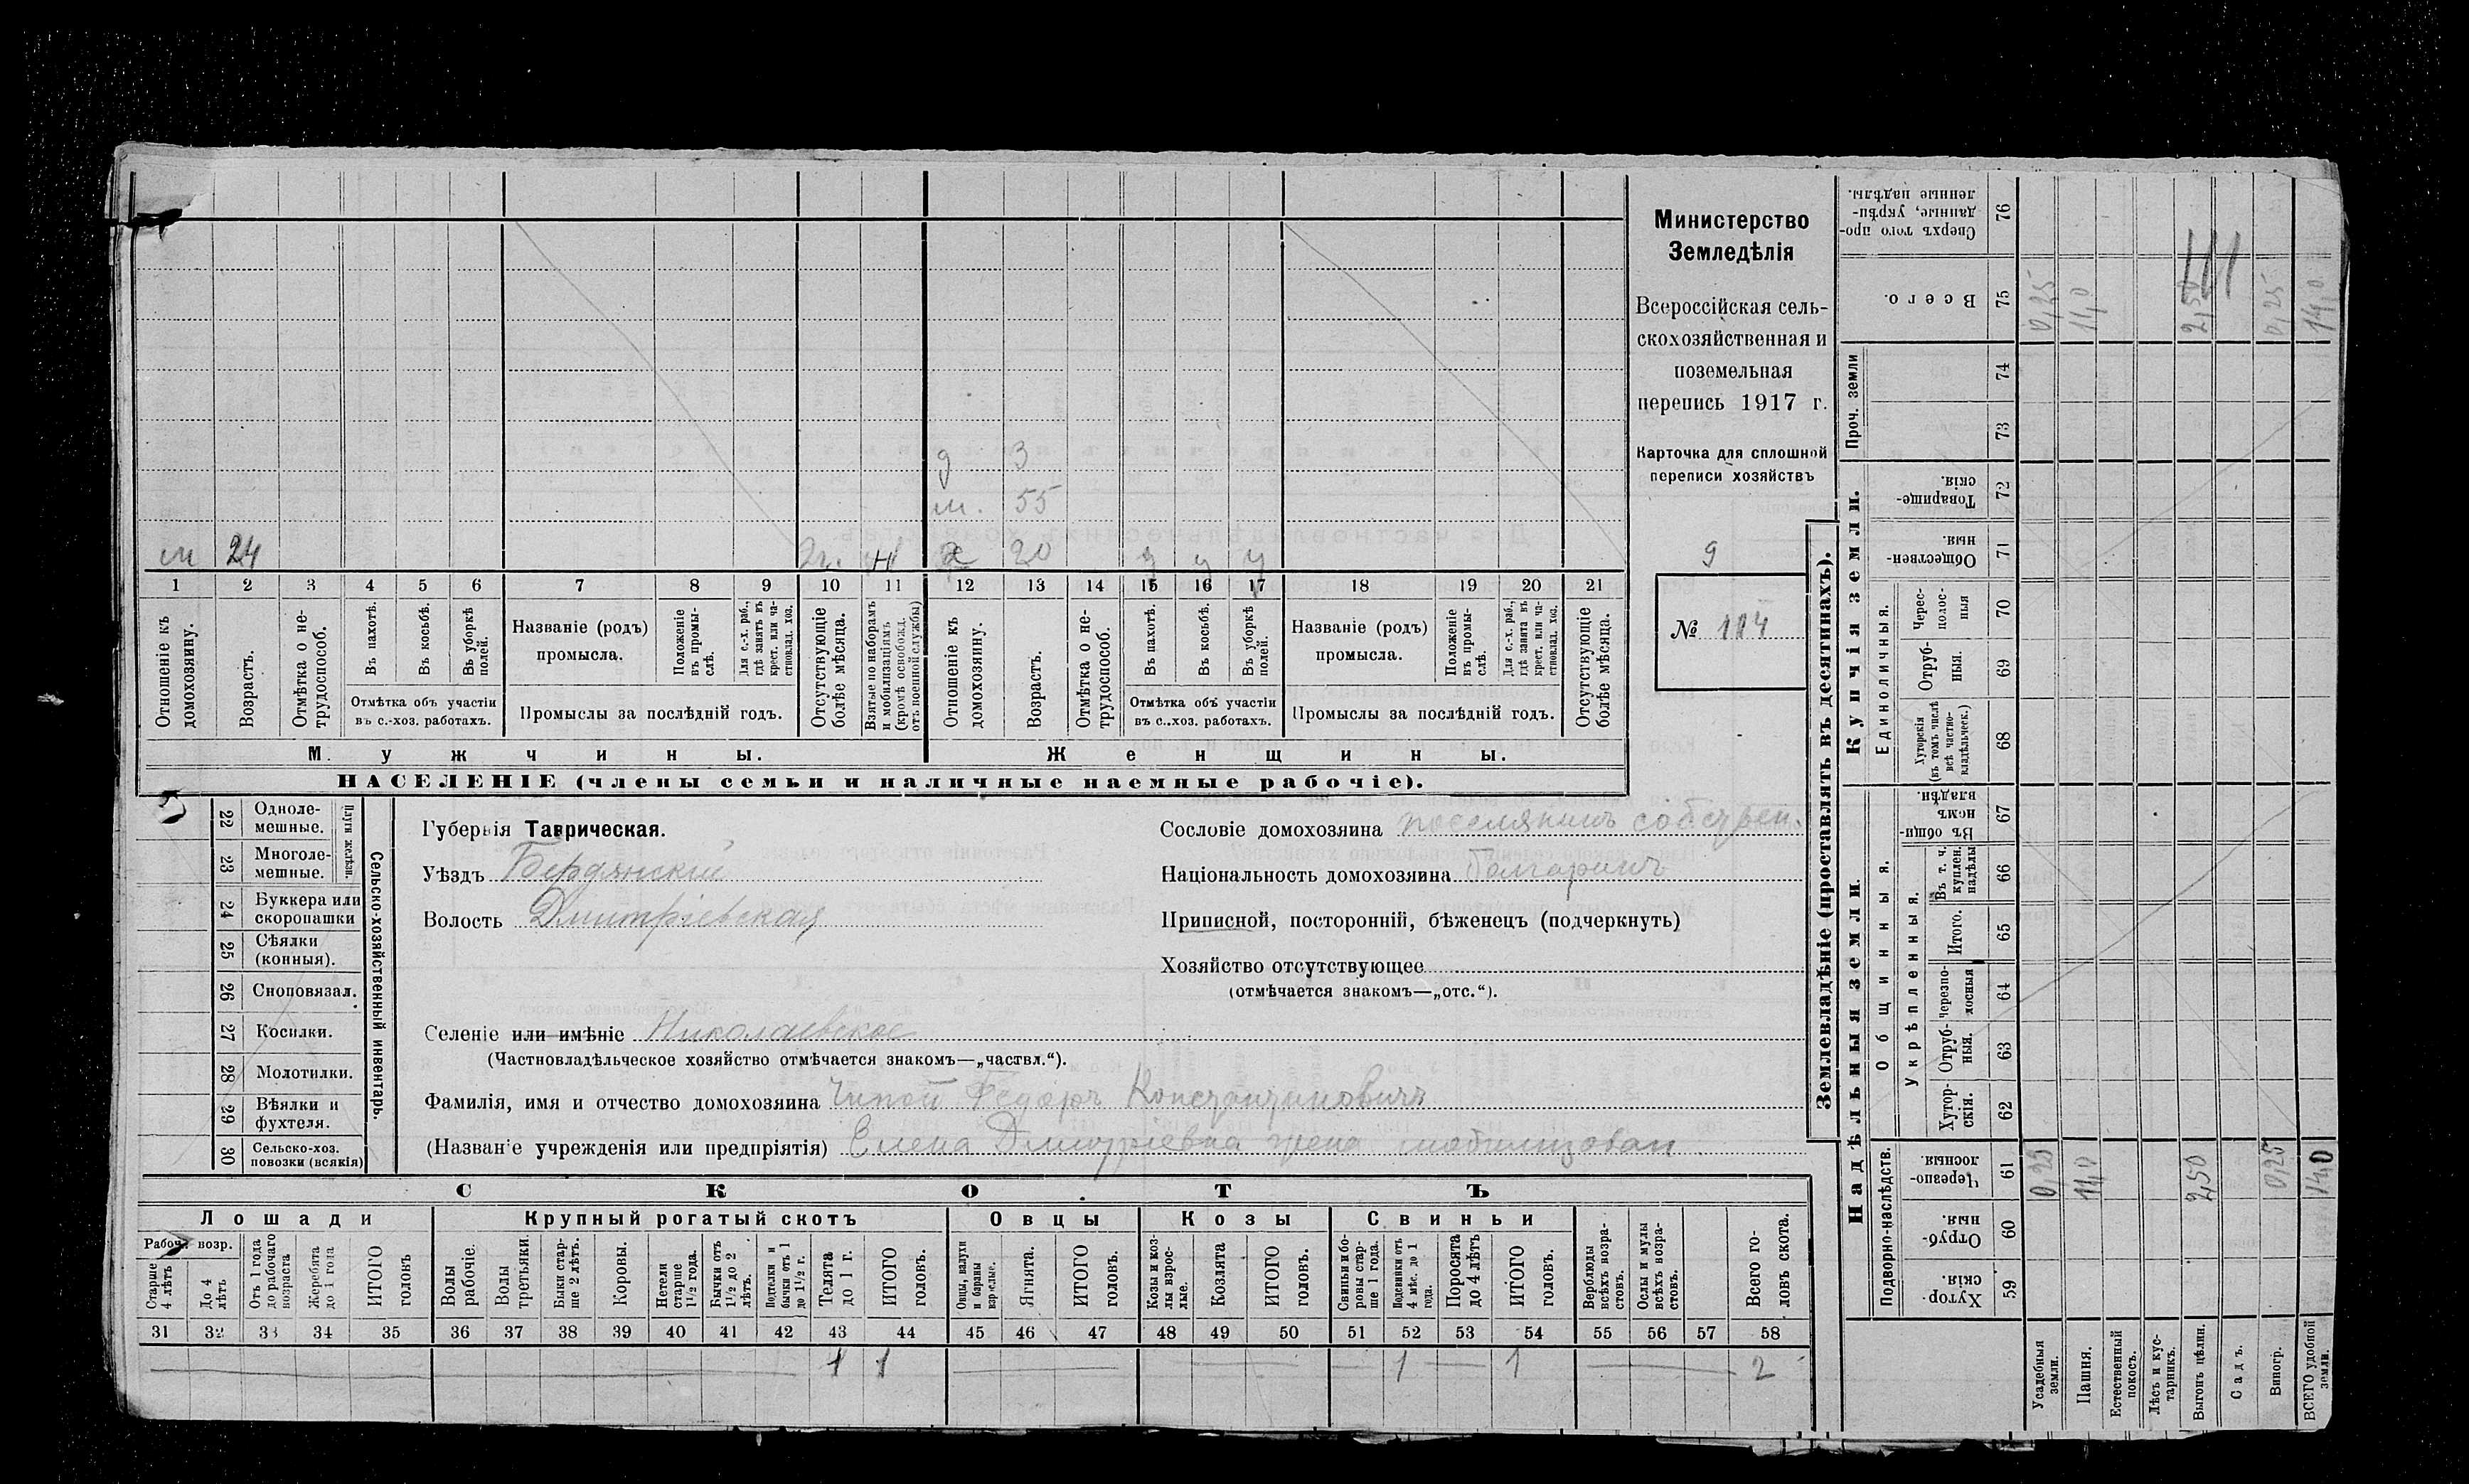 Министерство
Земледѣлія
Всероссійская сель-
скохозяйственная и
поземельная
перепись 1917 г.
Карточка для сплошной
переписи хозяйствъ
9
№ 104
д 3
м. 55
м 24 2г. ж 20 у у у
1 2 3 4 5 6 7 8 9 10 11 12 13 14 15 16 17 18 19 20 21
Отношеніе къ домохозяину.
Возрастъ.
Отмѣтка о не-трудоспособ.
Въ пахотѣ.
Въ косьбѣ.
Въ уборкѣ полей.
Отмѣтка объ участіи
въ с.-хоз. работахъ.
Названіе (родъ)
промысла.
Положеніе въ промы-слѣ.
Для с.-х. раб., гдѣ занятъ въ крест. или ча-стновлад. хоз.
Промыслы за послѣдній годъ.
Отсутствующіе болѣе мѣсяца.
Взятые по наборамъ и мобилизаціямъ (кромѣ освобожд. отъ военной службы)
Отношеніе къ домохозяину.
Возрастъ.
Отмѣтка о не-трудоспособ.
Въ пахотѣ.
Въ косьбѣ.
Въ уборкѣ полей.
Отмѣтка объ участіи
въ с..хоз. работахъ.
Названіе (родъ)
промысла.
Положеніе въ промы-слѣ.
Для с.-х. раб., гдѣ занята въ крест. или ча-стновлад. хоз.
Промыслы за послѣдній годъ.
Отсутствующіе болѣе мѣсяца.
Мужчины.
Женщины.
НАСЕЛЕНІЕ (члены семьи и наличные наемные рабочіе).
22 Одноле-мешные.
23 Многоле-мешные.
Плуги желѣзн.
24 Буккера или скоропашки
25 Сѣялки (конныя).
26 Сноповязал.
27 Косилки.
28 Молотилки.
29 Вѣялки и фухтеля.
30 Сельско-хоз. повозки (всякія)
Сельско-хозяйственный инвентарь.
Губернія Таврическая.
Уѣздъ Бердянскій
Волость Дмитріевская
Сословіе домохозяина поселянинъ собствен.
Національность домохозяина Болгаринъ
Приписной, посторонній, бѣженецъ (подчеркнуть)
Хозяйство отсутствующее
(отмѣчается знакомъ—„отс.“).
Селеніе или имѣніе Николаевское
(Частновладѣльческое хозяйство отмѣчается знакомъ—„частвл.“).
Фамилія, имя и отчество домохозяина Федоръ Константиновичъ
(Названіе учрежденія или предпріятія) Елена Дмитріевна жена мобилизован
СКОТЪ
Лошади
Крупный рогатый скотъ
Овцы
Козы
Свиньи
Рабоч. возр.
Старше 4 лѣтъ
До 4 лѣтъ
Отъ 1 года до рабочаго возраста
Жеребята до 1 года
ИТОГО головъ
Волы рабочіе.
Волы третьяки.
Быки стар-ше 2 лѣтъ.
Коровы.
Нетели старше 1½ года.
Бычки отъ 1½ до 2 лѣтъ.
Подтелки и бычки отъ 1 до 1½ г.
Телята до 1 г.
ИТОГО головъ.
Овцы, валухи и бараны взрослые.
Ягнята.
ИТОГО головъ.
Козы и коз-лы взрос-лые.
Козлята
ИТОГО головъ.
Свиньи и бо-ровы стар-ше 1 года.
Подсвинки отъ 4 мѣс. до 1 года.
Поросята до 4 лѣтъ
ИТОГО головъ.
Верблюды всѣхъ возра-стовъ.
Ослы и мулы всѣхъ возра-стовъ.
Всего го-ловъ скота.
31 32 33 34 35 36 37 38 39 40 41 42 43 44 45 46 47 48 49 50 51 52 53 54 55 56 57 58
1 1 1 1 2
Землевладѣніе (проставлять въ десятинахъ).
Надѣльныя земли.
Купчія земли.
Проч. земли
Подворно-наслѣдств.
Общинныя.
Укрѣпленныя.
Единоличныя.
59 Хутор-скія.
60 Отруб-ныя.
61 Черезпо-лосныя.
62 Хутор-скія.
63 Отруб-ныя.
64 черезпо-лосныя
65 Итого.
66 Въ т. ч. куплен. надѣлы
67 Въ общин-номъ владѣн.
68 Хуторскія (въ томъ числѣ всѣ частно-владѣльческ.)
69 Отруб-ныя.
70 Черес-полос-ныя
71 Обществен-ныя.
72 Товарище-скія.
73
74
75 Всего.
76 Сверхъ того про-данные, укрѣп-ленные надѣлы.
Усадебныя земли. 0,25 0,25
Пашня. 11,0 11,0
Естественный покосъ.
Лѣсъ и кус-тарникъ.
Выгонъ цѣлин. 2,50 2,50
Садъ.
Виногр. 0,25 0,25
ВСЕГО удобной земли. 14,0 14,0